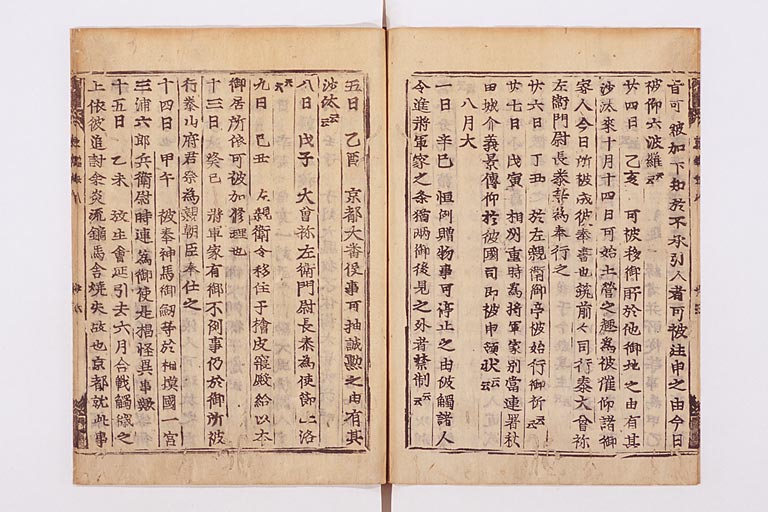 旨可被加下知於不承引人者可被注申之由今日
被仰六波羅云云
廿四日 乙亥 可被移御所於他御地之由有其
沙汰来十月十四日可始土管之趣為被催仰諸御
家人今日所被成彼奉書也筑前々司行泰大曾祢
左衛門尉長泰等為奉行之
廿六日 丁丑 於左親衛御亭被始行御祈云云
廿七日 小戊寅 相州重時為将軍家別當連署秋
田城介義景傳仰於彼國司即被申領状云云
八月大
一日 辛巳 恒例贈物事可停止之由被觸諸人
令進将軍家之条猶両御後見之外者禁制云云
五日 乙酉 京都大番役事可抽誠勲之由有其
沙汰云云
八日 戊子 大曾祢左衛門尉長泰為使節上洛云云
九日 己丑 左親衛令移住于檜皮寝殿給以本
御居所依可被加修理也
十三日 癸巳 将軍家有御不例事仍於御所被
行泰山府君祭為親朝臣奉仕之
十四日 甲午 被奉神馬御釼等於相模國一宮
三浦六郎兵衛尉時連為御使是揭怪異事歟
十五日 乙未 放生會延引去六月合戦觸穢之
上依彼追討余炎流鏑馬舎焼失故也京都就此事